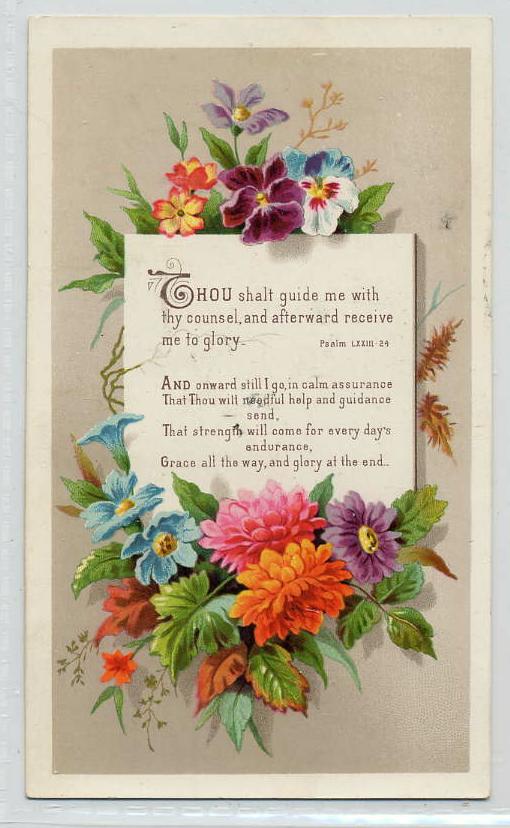 THOU shalt guide me with
thy counsel, and afterward receive
me to glory.. Psalm LXXIII-24
AND onward still I go, in calm assurance
That Thou will needful help and guidance
send,
That strength will come for every day's
endurance,
Grace all the way, and glory at the end..